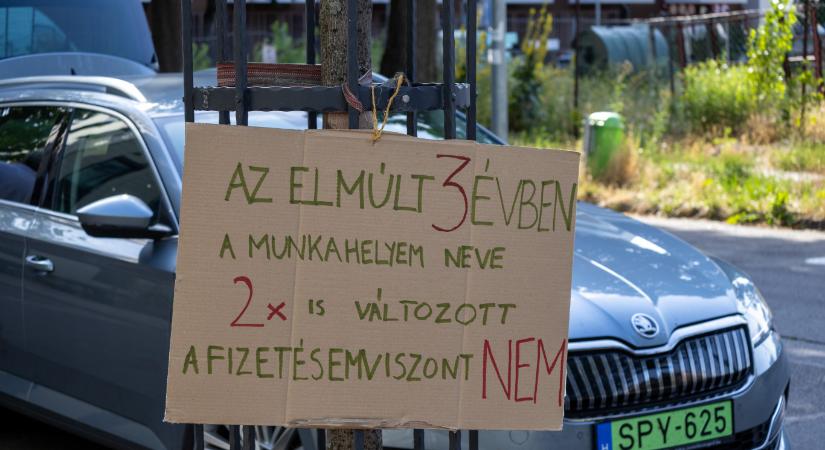 AZ ELMÚLT 3 ÉVBEN
A MUNKAHELYEM NEVE
2x IS VÁLTOZOTT
A FIZETÉSEM VISZONT NEM
H SPY-625